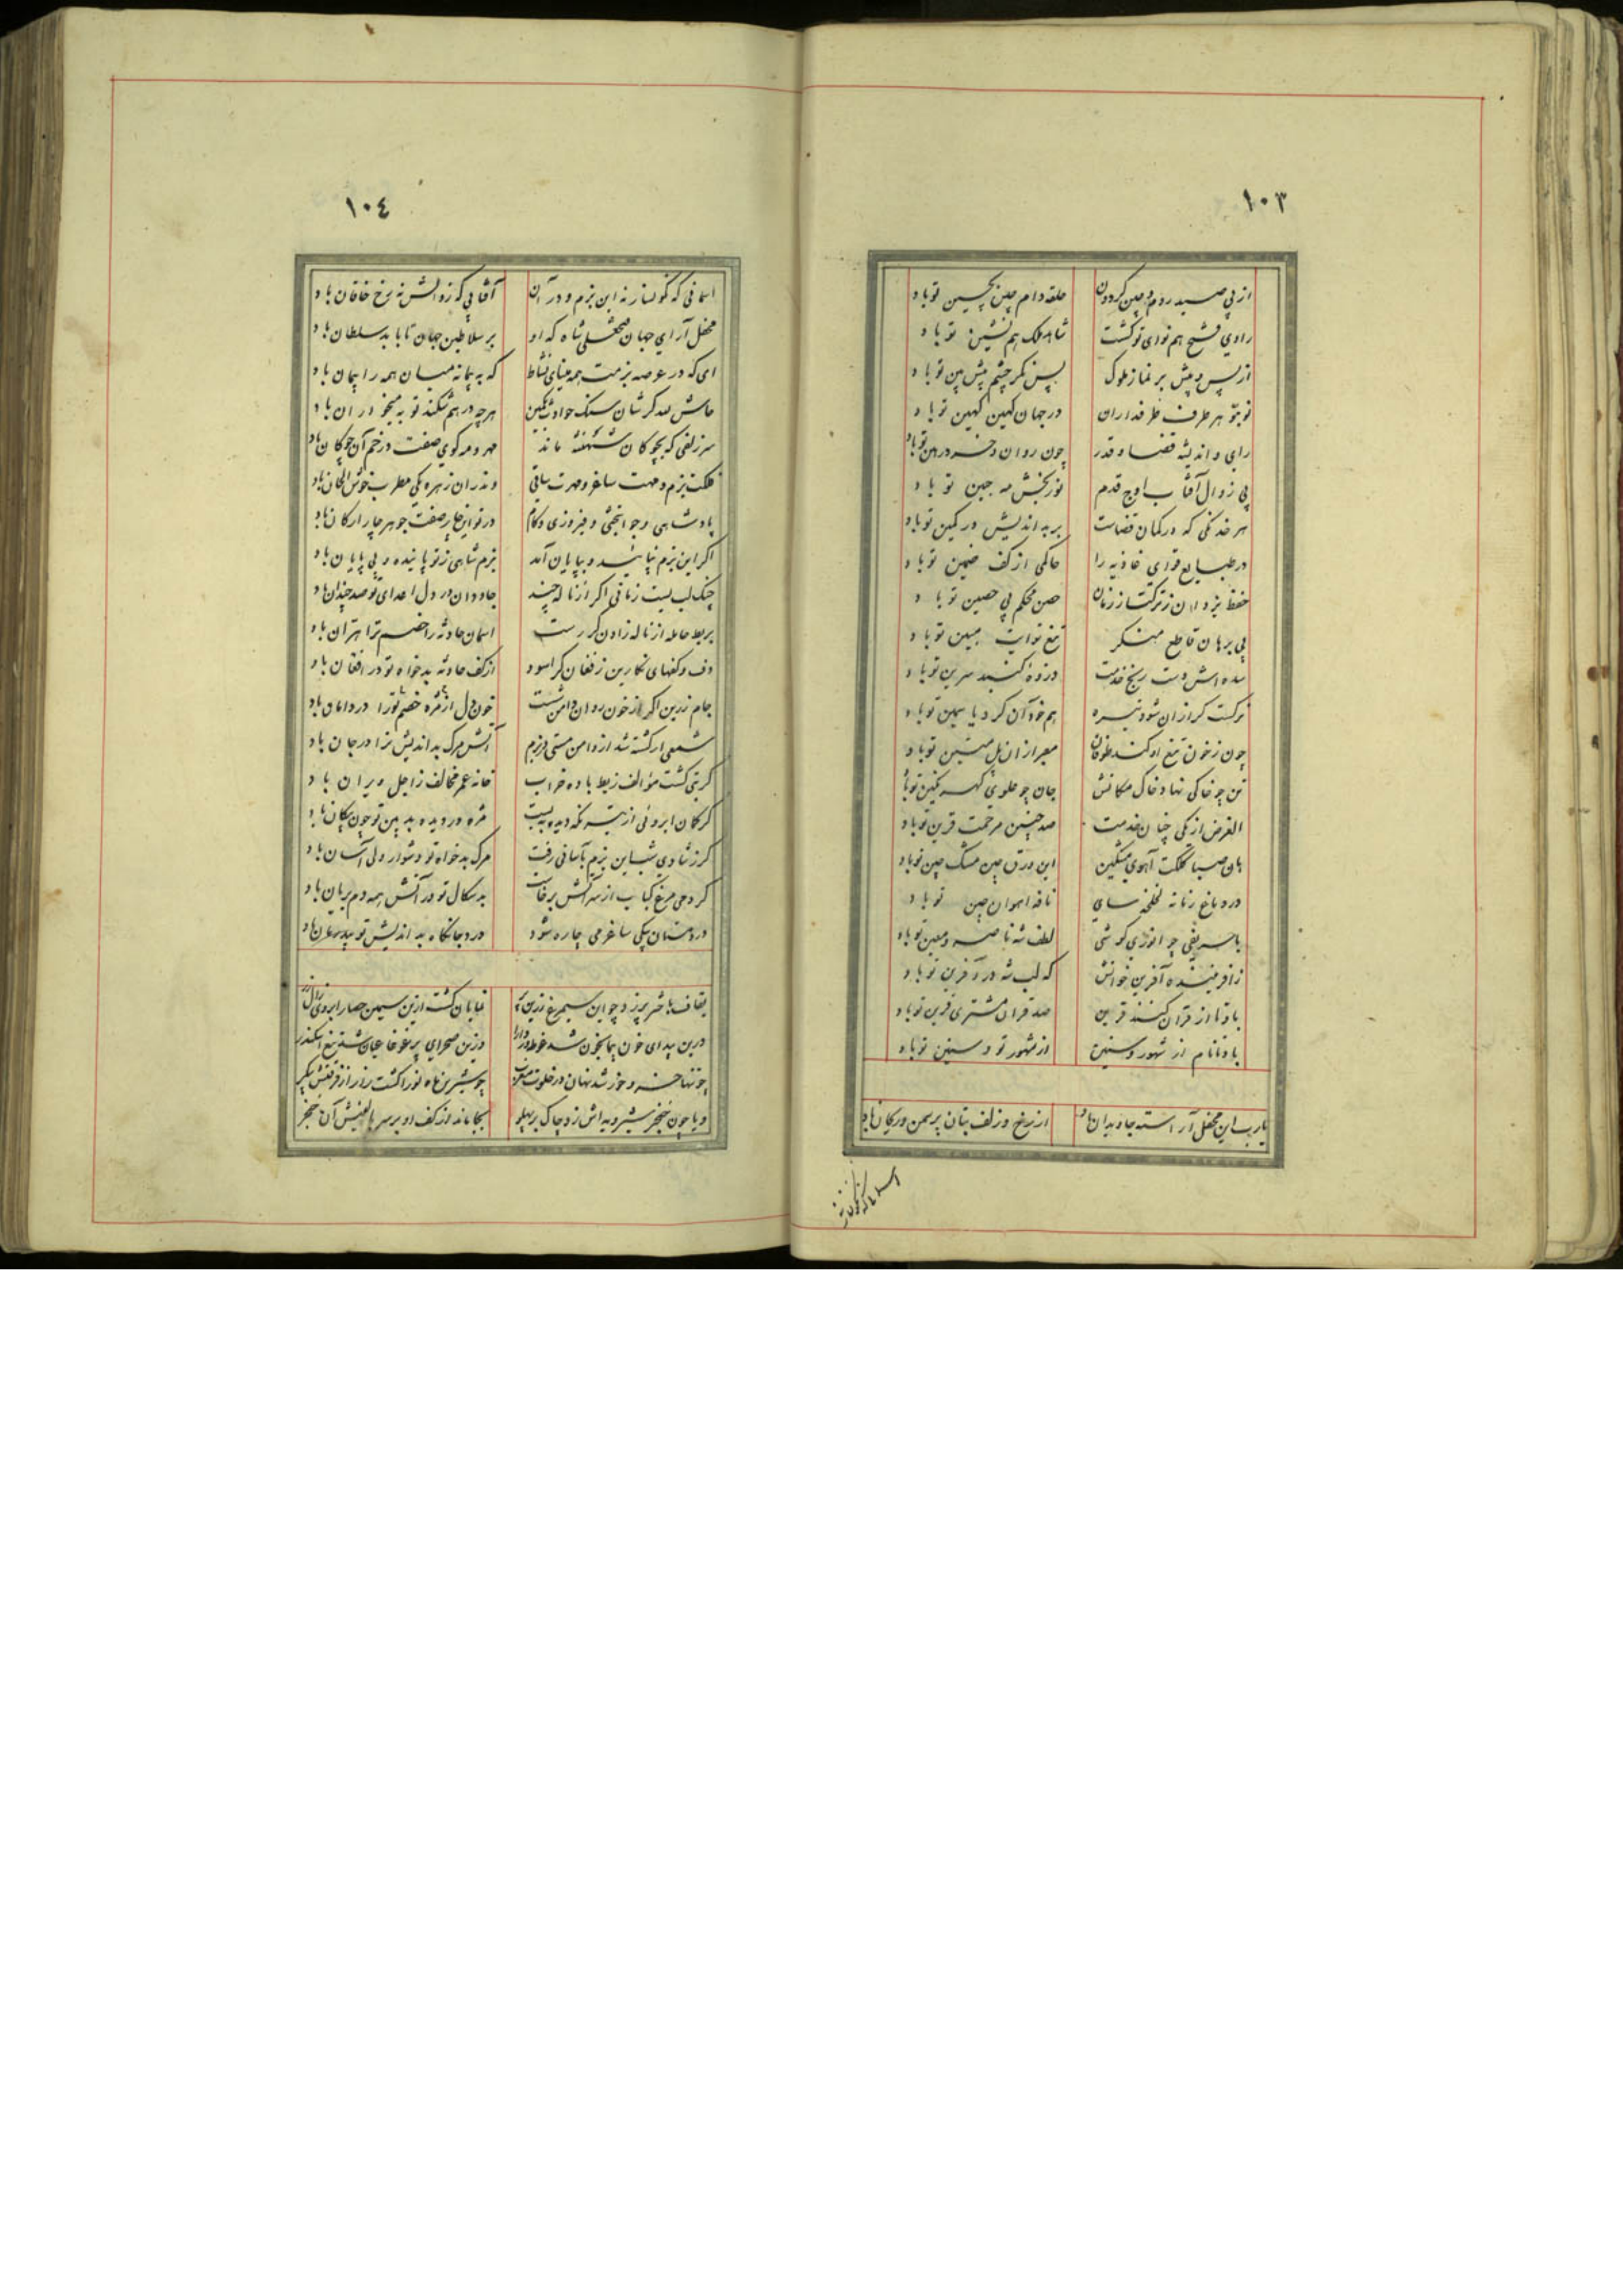 ١٠٣
از پی صید روم و چین کردون حلقه دام چین بچین تو باد
راوی فتح هم نوای تو کشت شاه ملک هم نشین تو باد
از پس و پیش بر نماز ملوک پس نکر چشم پیش بین تو باد
نوبتو هر طرف طرفداران در جهان کهین کهین تو باد
رای و اندیشه قضا و قدر چون روان و خرد رهین تو باد
بی زوال آفتاب اوج قدم نور بخش مه جبین تو باد
هر خدنکی که در کمان قضاست بر بد اندیش در کمین تو باد
در طبایع قوای غاذیه را حاکمی از کف ضمین تو باد
حفظ یزدان ز ترکتاز زمان حصن محکم پی حصین تو باد
بی برهان قاطع منکر تیغ تو آیت مبین تو باد
سده اش دست رنج خدمت ذروه کنبد سرین تو باد
نرکست کر ازان شود تیره هم خود آن کرد یا سمین تو باد
چون ز خون تیغ او کند طوفان معبر ازان پل متین تو باد
تن چو خاکی نهاد خاک مکانش جان چو علوی کهر مکین تو باد
الغرض از یکی چنان خدمت صد چنین مرحمت قرین تو باد
هان صبا کلکت آهوی مشکین این ورق چین مشک چین تو باد
در دماغ زمانه لخلخه سای نافه اهوان چین تو باد
با حریفی چو انوری کوشی لطف شه ناصر و معین تو باد
زافریننده آفرین خوانش که لب شه در آفرین تو باد
باد تا از قران کنند قرین صد قران مشتری قرین تو باد
باد تا نام از شهور و سنین از شهور تو و سنین تو باد
یارب این محفل آراسته جاویدان باد از رخ و زلف بتان پر سمن و ریحان باد
١٠٤
اسمانی که نکونسار نه این بزم و در آن آفتابی که زوالش نه رخ خاقان باد
محفل آرای جهان فتحعلی شاه که او بر سلاطین جهان تا بابد سلطان باد
ای که در عرصه بزمت همه مینای نشاط که به پیمانه میان همه را پیمان باد
حاش لله کر شان سنک حوادث بکمین هر چه در هم شکند تو به میخوران باد
سر زلفی که بچوکان شهنشه ماند مهر و مه کوی صفت در خم آن چوکان باد
فلکت بزم و مهت ساغر و مهرت ساقی وندران زهره یکی مطرب خوش الحان باد
پادشاهی و جوانبختی و فیروزی و کام در تو این چار صفت جوهر چار ارکان باد
اکر این بزم نپاینده و بپایان آمد بزم شاهی ز تو پاینده و بی پایان باد
چنک لب بست زمانی اکر از ناله چند جاودان در دل اعدای تو صد چندان باد
بربط حامله از ناله زادن کر رست اسمان حادثه را خصم ترا بتران باد
دف و کفهای نکارین ز فغان کر اسود از کف حادثه بدخواه تو در افغان باد
جام زرین اکر از خون روان دامن شست خون دل از مژه خصم تو را در دامان باد
شمعی ار کشته شد از دامن مستی در بزم آتش مرک بد اندیش ترا در جان باد
کر بتی کشت مؤالف ز بط باده خراب خانه عمر مخالف ز اجل ویران باد
کر کمان ابروئی از تیر نکه دیده ببست مژه در دیده بد بین تو چون پیکان باد
کر ز شادی شب این بزم بآسانی رفت مرک بدخواه تو دشوار ولی آسان باد
کر دمی مرغ کباب از سر آتش برخاست بد سکال تو در آتش همه دم بریان باد
درد مستان بیکی ساغر می چاره شود درد جانکاه بد اندیش تو بیدرمان باد
بقاف باختر پر زد چو این سیمرغ زرین پر نمایان کشت ازین سیمین حصار ابروی زال زر
درین بیدای خون پیما بخون شد غوطه ور دارا وزین صحرای پر غوغا عیان شد تیغ اسکندر
چو تنها خسرو خور شد نهان در خلوت مغرب چو شیرین ماه نور انکشت زر از فرقش پیکر
و یا چون خنجر شیرویه اش زد چاک بر پهلو بجا ماند از کف او بر سر بالینش آن خنجر